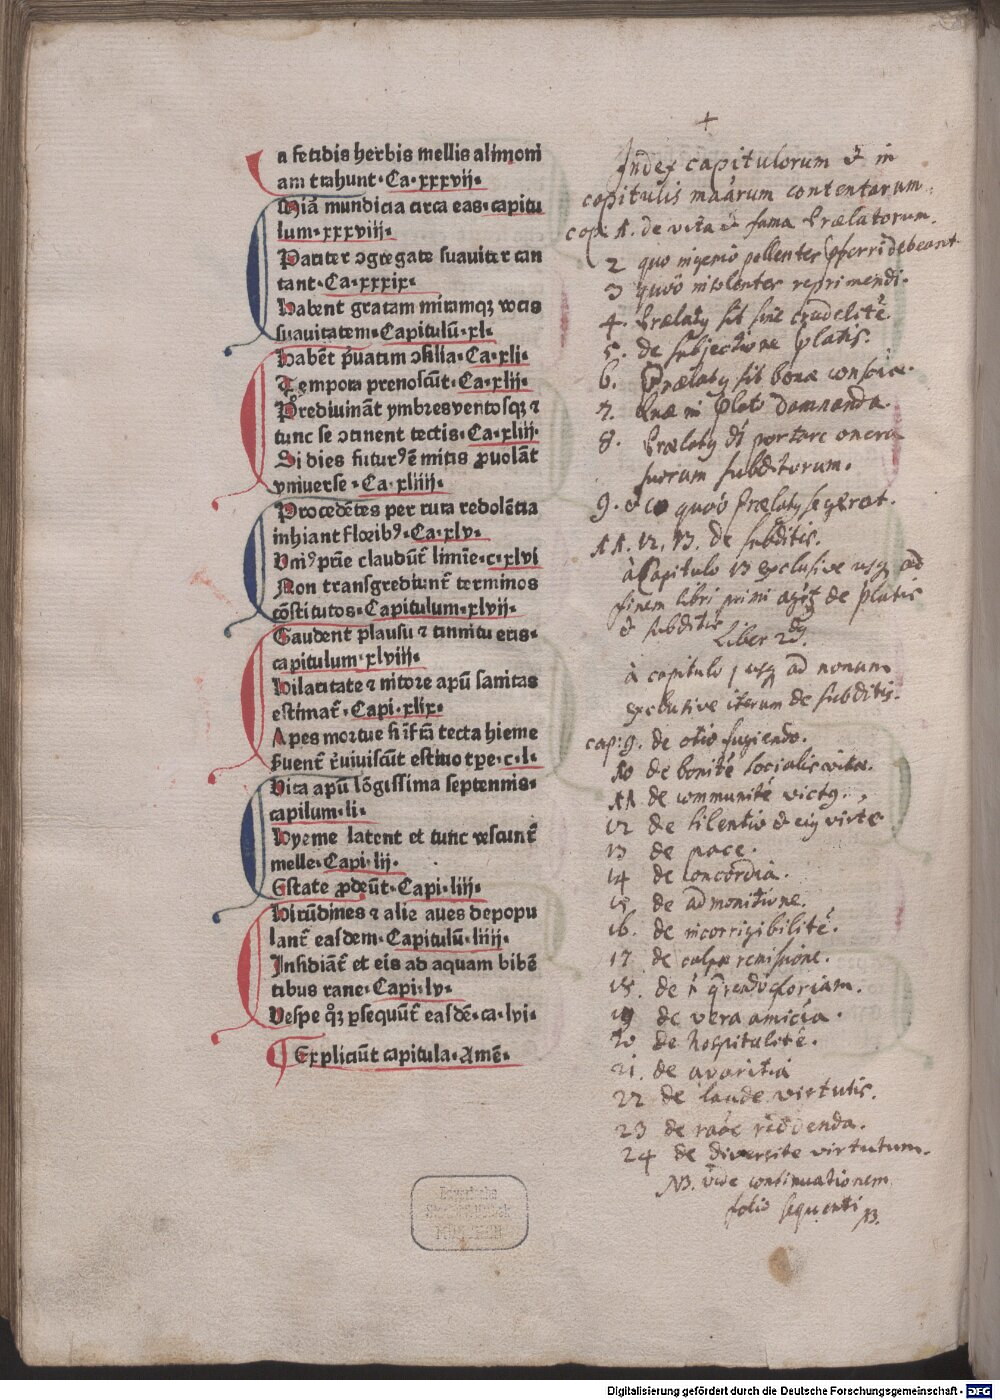 a fetidis herbis mellis alimoni
am trahunt·Ca·xxxvij·
Miā mundicia circa eas·capitu
lum·xxxviij·
Pariter ↄgregate suauiter can
tant·Ca·xxxix·
Habent gratam miramqꝫ vocis
suauitatem·Capitulū·xl·
Habēt p̓uatim ↄsilia·Ca·xli·
Tempora prenoscūt·Ca·xlij·
Prediuināt ymbres ventosqꝫ ⁊
tunc se ↄtinent tectis·Ca·xliij·
Si dies futurꝰ ē mitis ꝓuolāt
vniuerse·Ca·xliiij·
Procedētes per rura redolētia
inhiant floribꝰ·Ca·xlv·
Vniꝰ prīe claudūt̄ limīe·c·xlvi
Non transgrediunt̄ terminos
cōstitutos·Capitulum·xlvij·
Gaudent plausu ⁊ tinnitu eris·
capitulum·xlviij·
Hilaritate ⁊ nitore apū sanitas
estimat̄·Capi·xlix·
Apes mortue si īfra tecta hieme
fuerit̄ reuiuiscūt estiuo tꝑe·c·l·
Vita apū lōgissima septennis·
capilum·li·
Hyeme latent et tunc vescunt̄
melle·Capi·lij·
Estate ꝓdeūt·Capi·liij·
Hirūdines ⁊ alie aues depopu
lant̄ easdem·Capitulū·liiij·
Insidiāt̄ et eis ad aquam bibē
tibus rane·Capi·lv·
Vespe qꝫ ꝑsequūt̄ easdē·ca·lvi·
Expliciūt capitula·Amē·
+
Index capitulorum & in
capitulis maārum contentarum.
cap: 1. de vita & fama Prælatorum.
2 quo ingenio pollentes p̄ferri debeant
3 quōo insolentes reprimendi.
4. Prælatꝰ sit sine crudelitē.
5. de subjectione p̄latis.
6. Prælatꝰ sit bonæ conscīæ.
7. Quæ in p̄lato damnanda.
8. Prælatꝰ d̄t portare onera
suorum subditorum.
9. & 10 quōo Prælatꝰ se gerat.
11. 12. 13. de subditis.
à Capitulo 13 exclusive usqꝫ ad
finem libri primi agit de p̄latis
& subditis
Liber 2dꝰ.
à capitulo 1 usqꝫ ad nonum
exclusive iterum de subditis.
cap: 9. de otio fugiendo.
10 de bonitē socialis vitæ.
11 de communitē victꝰ.
12 de silentio & eiꝰ virtē
13 de pace.
14 de concordia.
15. de admonitione.
16. de incorrigibilitē.
17 de culpæ remissione.
18. de n̄ q̄rendo gloriam.
19 de vera amicīa.
20 de hospitalitē.
21. de avaritia
22 de laude virtutis.
23 de raōe reddenda.
24 de diversitē virtutum.
NB. vide continuationem
folio sequenti NB.
Bayerische
Staatsbibliothek
MÜNCHEN
Digitalisierung gefördert durch die Deutsche Forschungsgemeinschaft - DFG